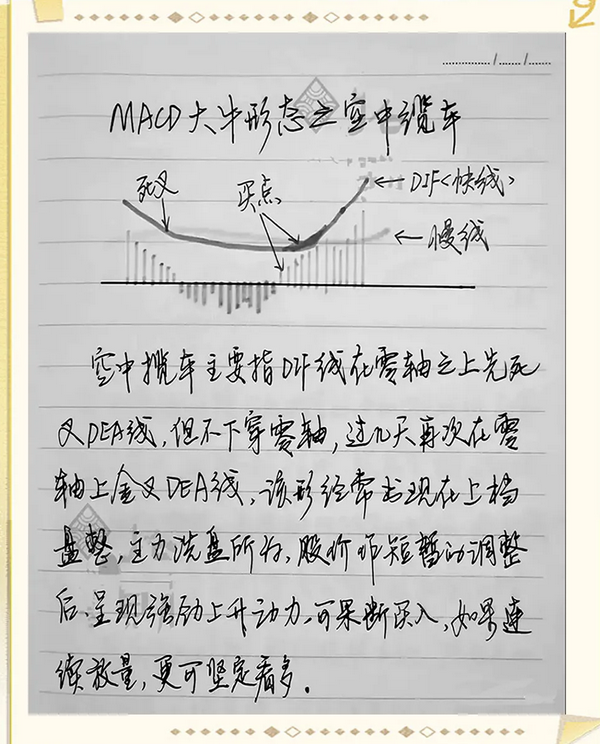 MACD大牛形态之空中缆车
死叉
买点
DIF<快线>
慢线
空中揽车主要指DIF线在零轴之上先死
叉DEA线,但不下穿零轴,过几天再次在零
轴上金叉DEA线,该形经常出现在上档
盘整,主力洗盘所为,股价作短暂的调整
后、呈现强劲上升动力,可果断买入,如果连
续放量,更可坚定看多.